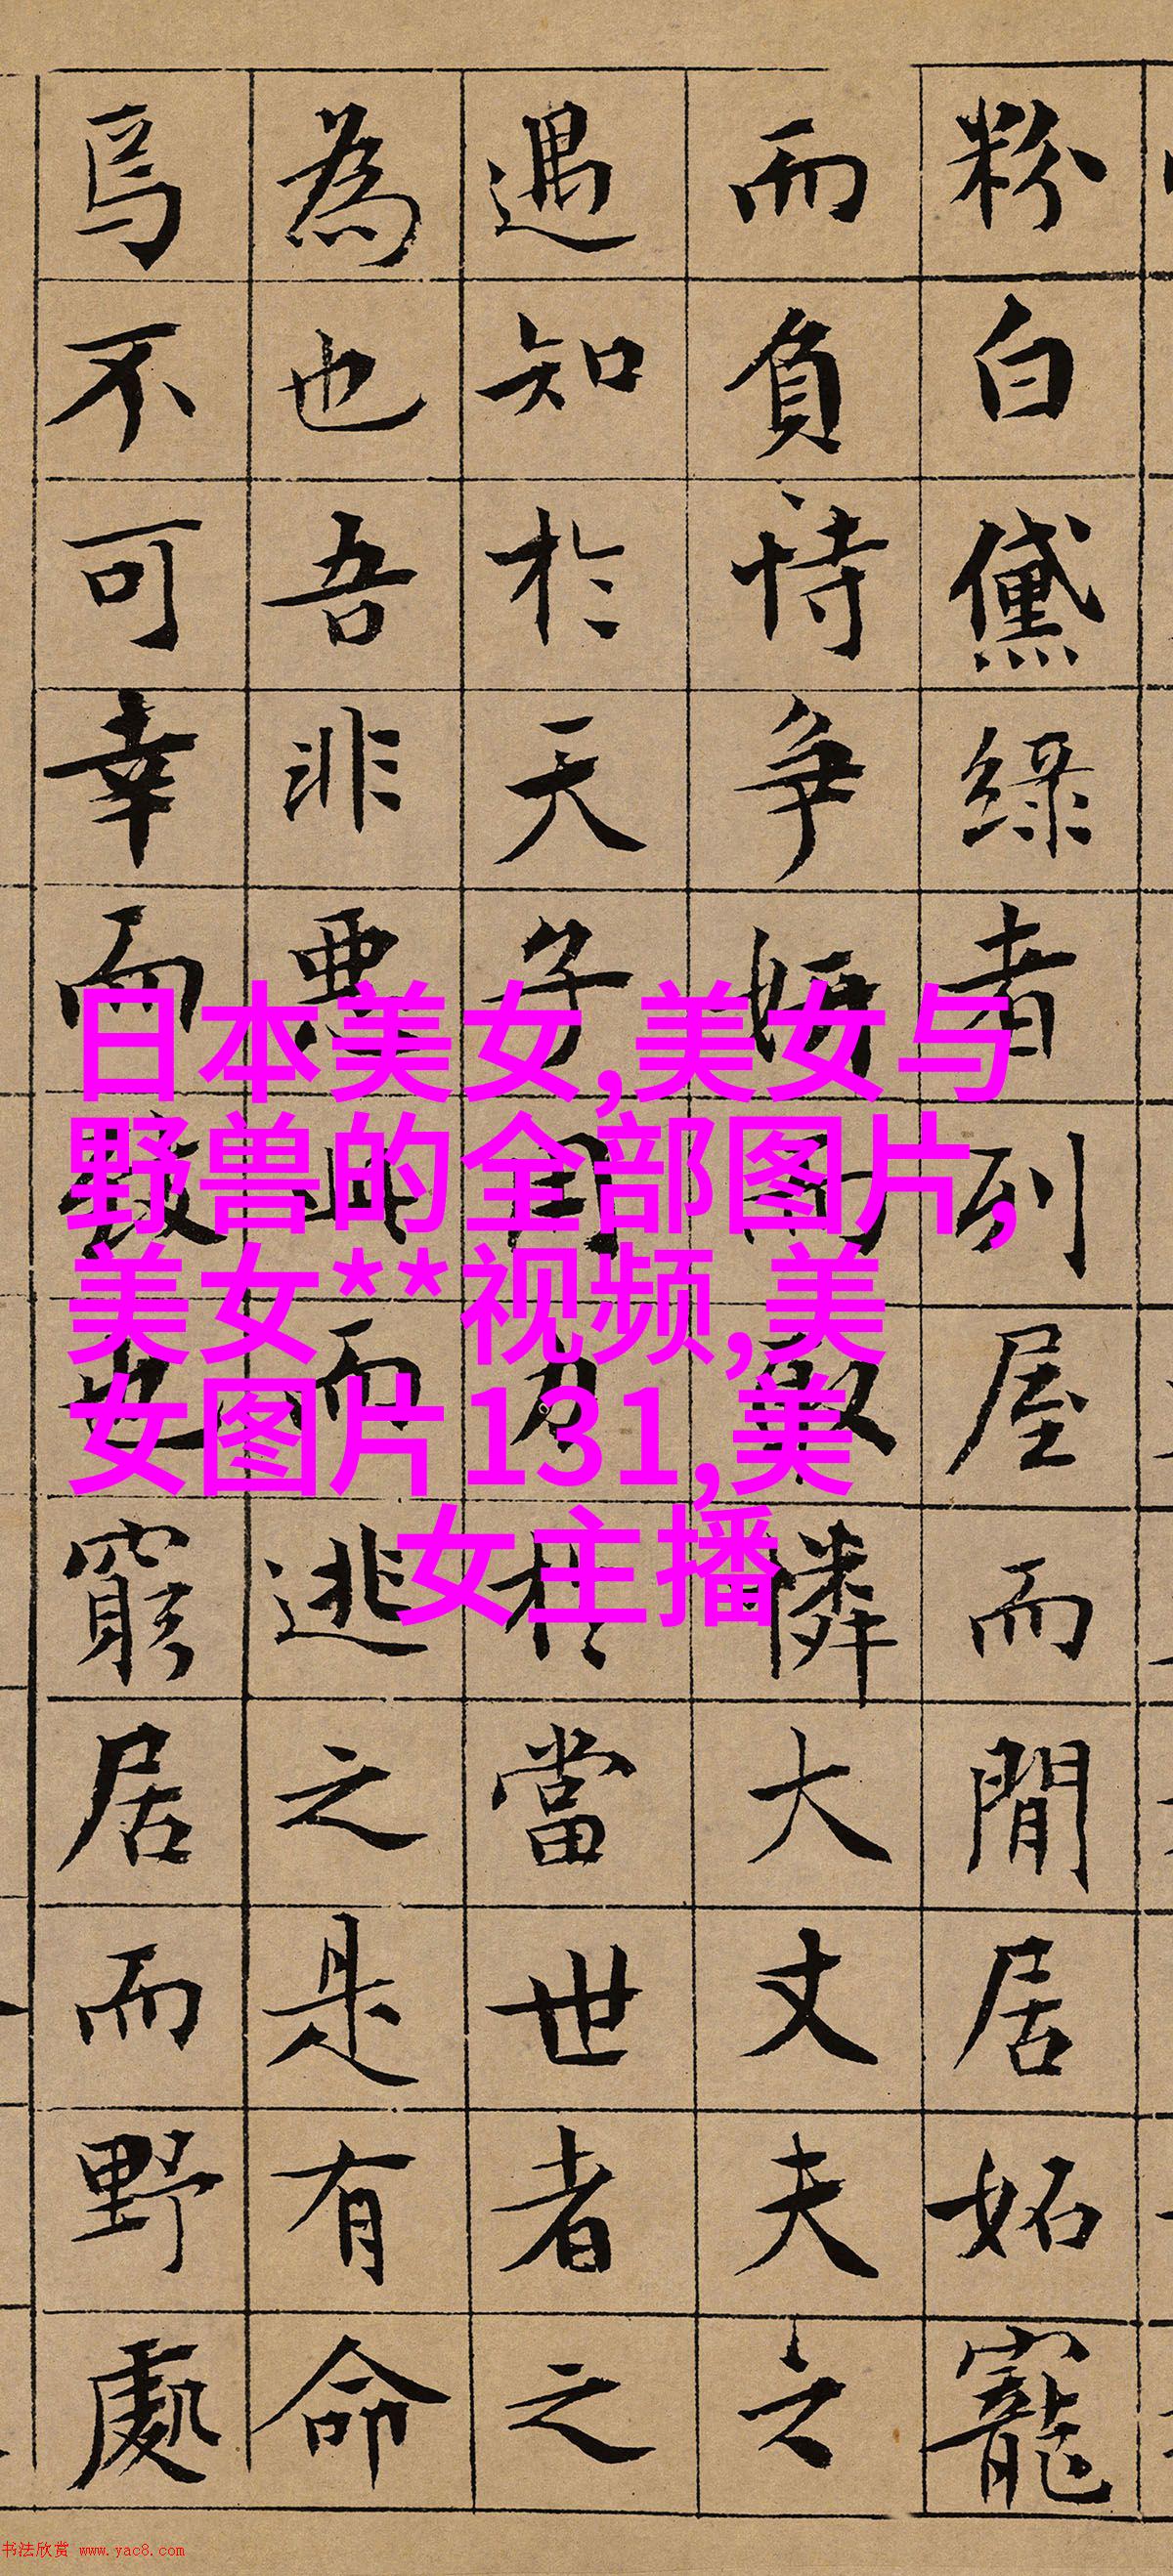 粉白黛綠者列屋而閒居妬寵
而負恃爭妍而取憐大丈夫之
遇知於天子用力於當世者之
為也吾非惡此而逃之是有命
焉不可幸而致也窮居而野處
日本美女,美女与
野兽的全部图片,
美女**视频,美
女图片131,美
女主播
书法欣赏 www.yac8.com